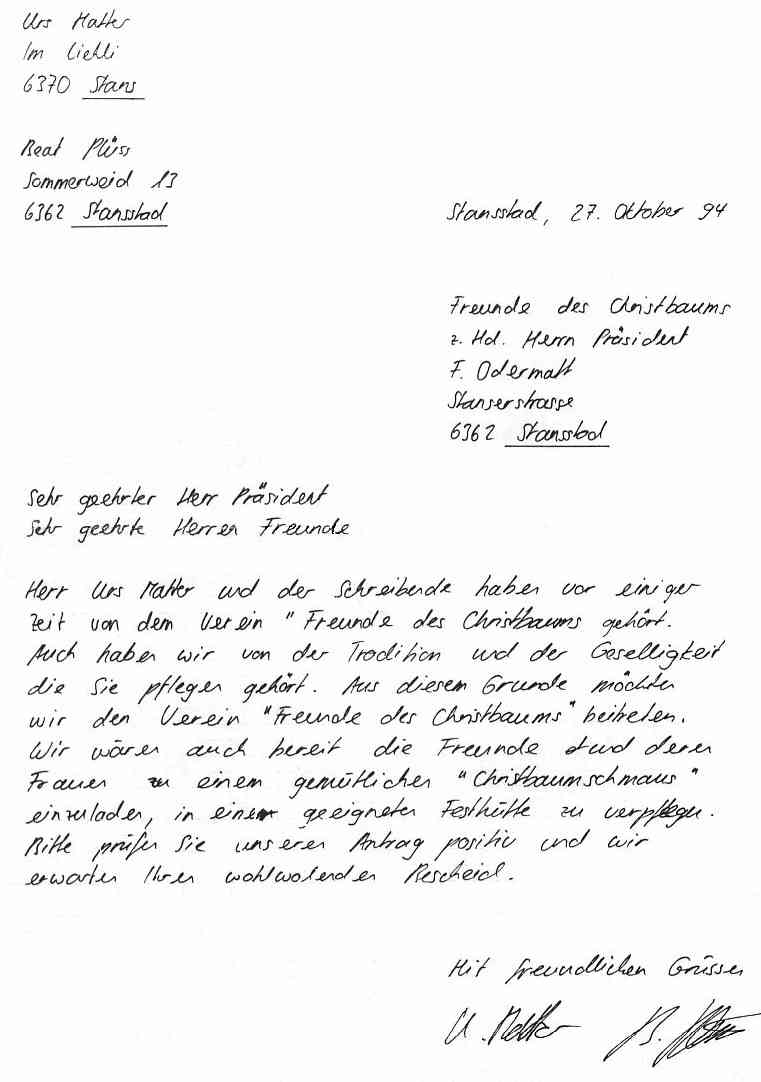 Urs Matter
Im Liehli
6370 Stans
Beat Plüss
Sommerweid 13
6362 Stansstad
Stansstad, 27. Oktober 94
Freunde des Christbaums
z. Hd. Herrn Präsident
F. Odermatt
Stanserstrasse
6362 Stansstad
Sehr geehrter Herr Präsident
Sehr geehrte Herren Freunde
Herr Urs Matter und der Schreibende haben vor einiger
Zeit von dem Verein "Freunde des Christbaums gehört.
Auch haben wir von der Tradition und der Geselligkeit
die Sie pflegen gehört. Aus diesem Grunde möchten
wir den Verein "Freunde des Christbaums" beitreten.
Wir wären auch bereit die Freunde und deren
Frauen zu einem gemütlichen "Christbaumschmaus"
einzuladen, in einem geeigneten Festhütte zu verpflegen.
Bitte prüfen Sie unseren Antrag positiv und wir
erwarten Ihren wohlwolenden Bescheid.
Mit freundlichen Grüssen
U. Matter
B.